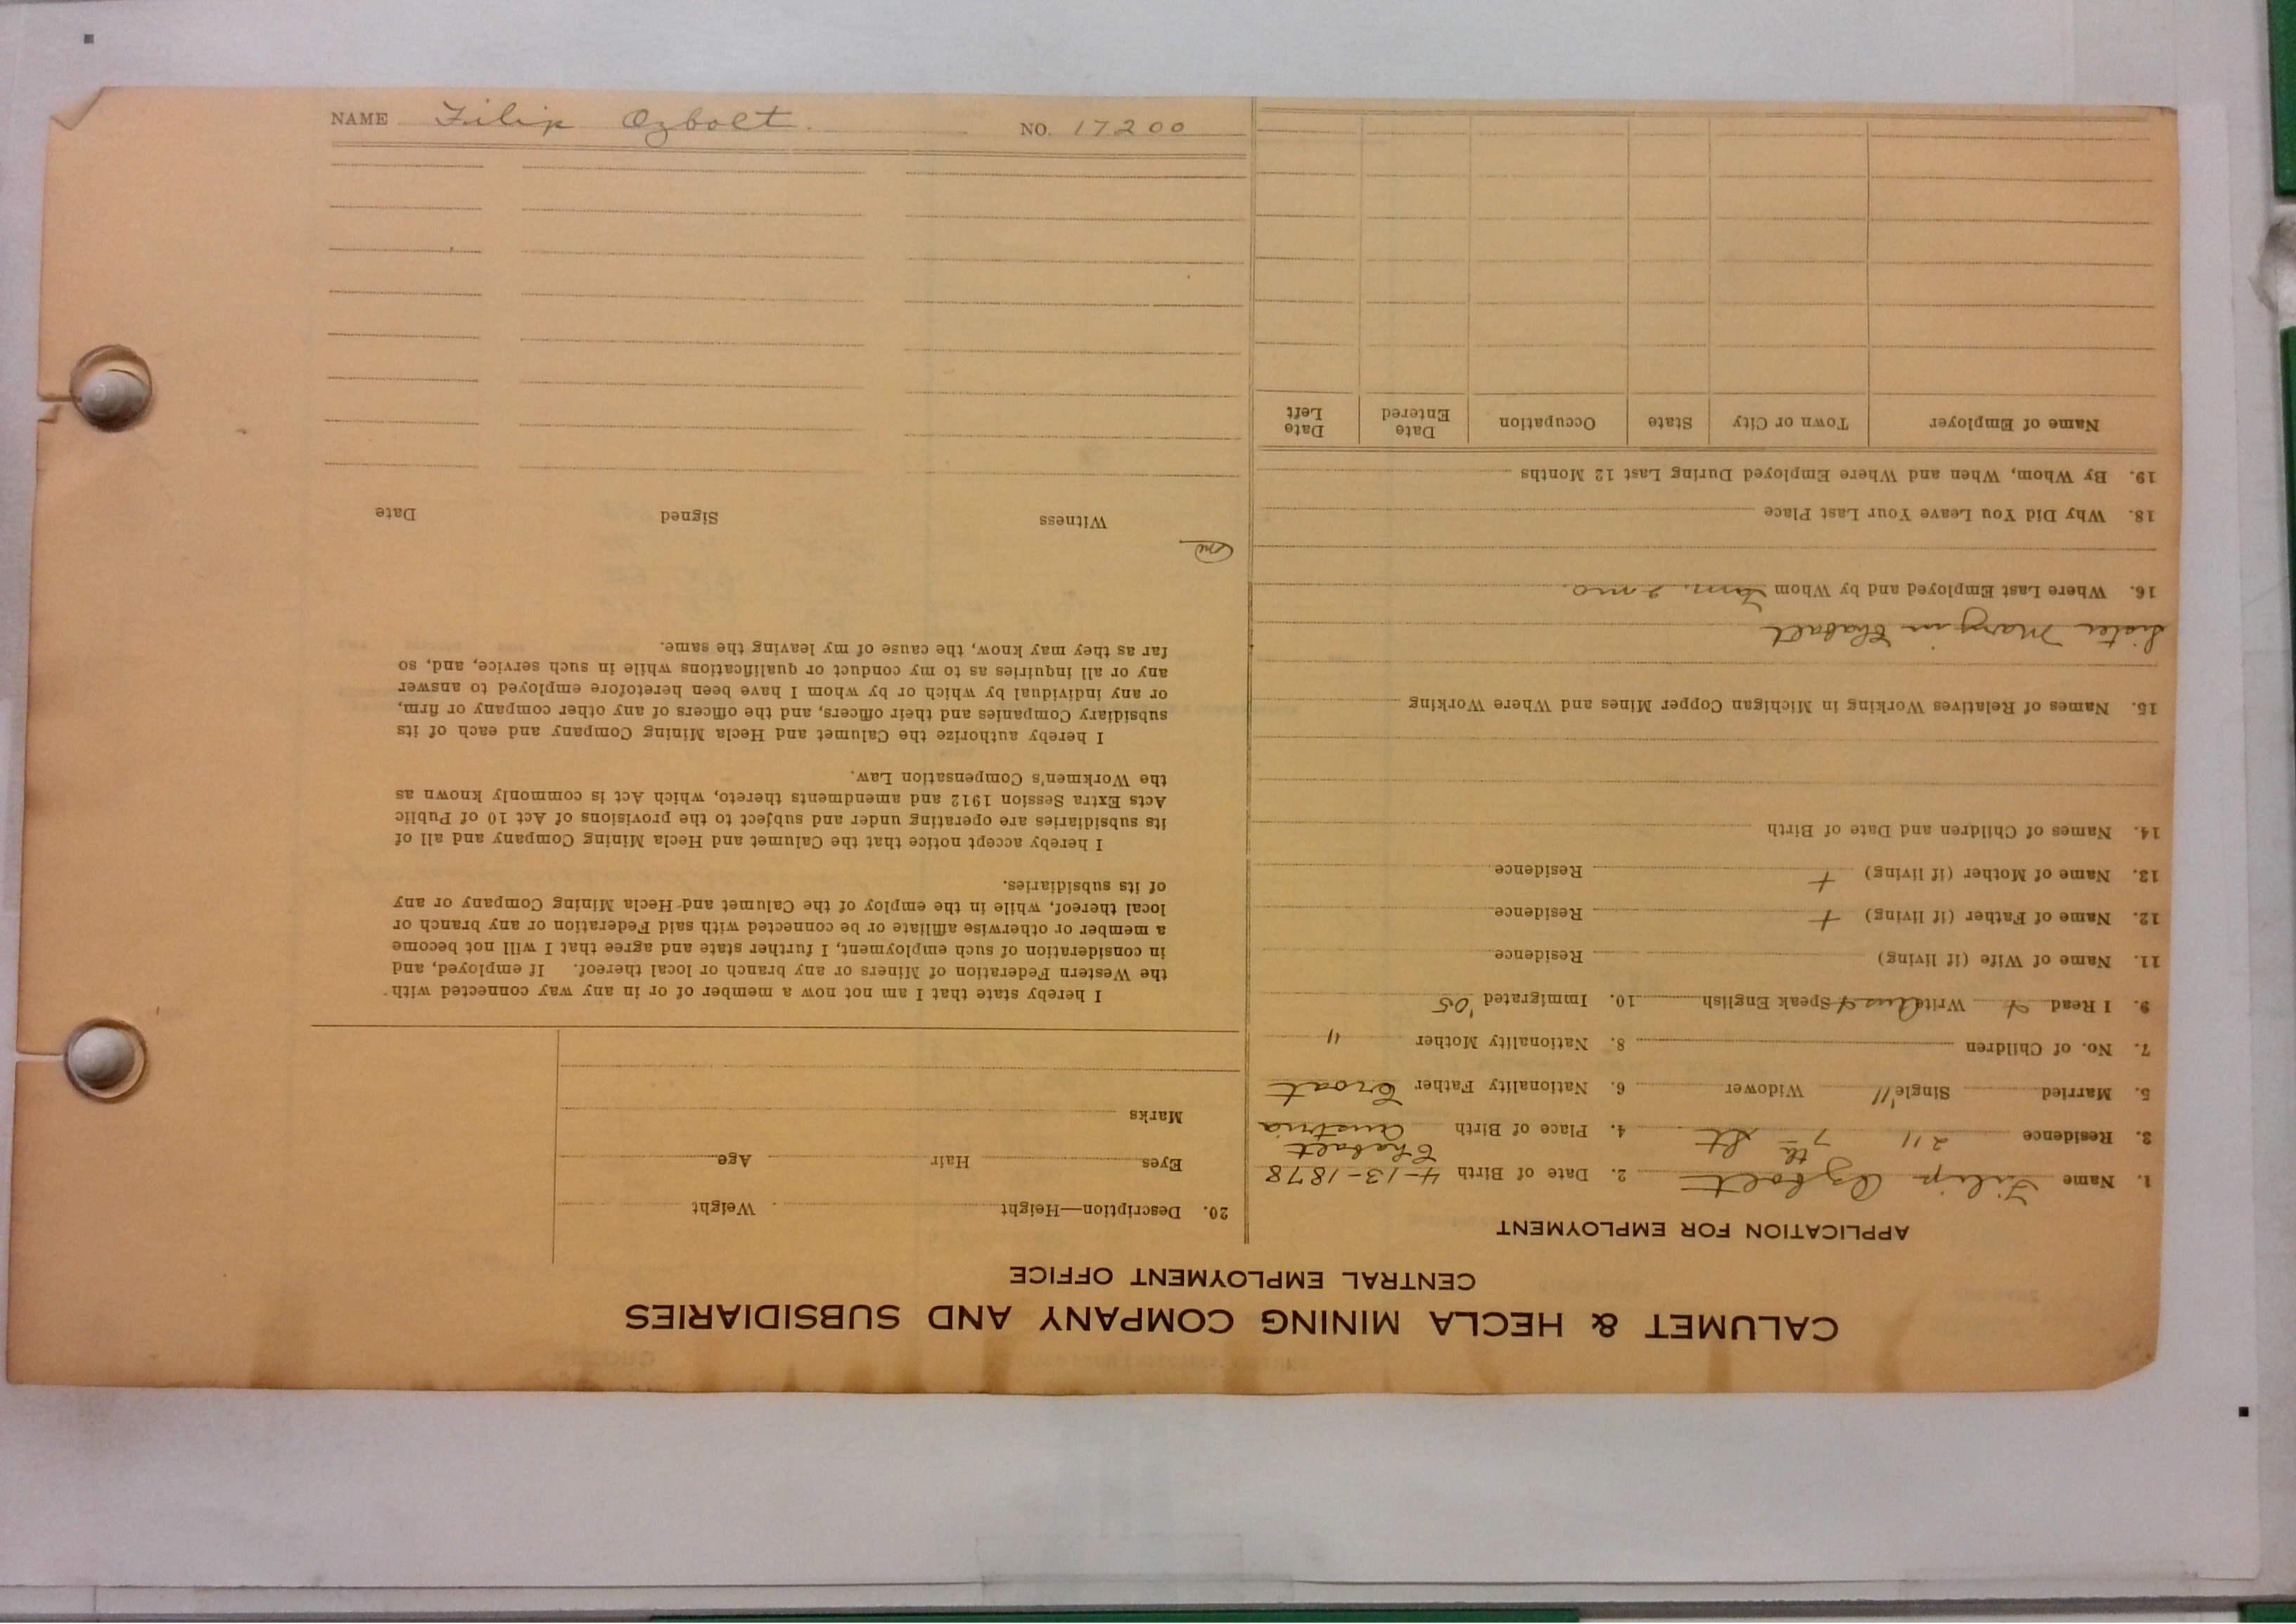 CALUMET & HECLA MINING COMPANY AND SUBSIDIARIES
CENTRAL EMPLOYMENT OFFICE
APPLICATION FOR EMPLOYMENT
1. Name Filip Ozbolt 2. Date of Birth 4-13-1878
Chabalt
3. Residence 211 7th St 4. Place of Birth Austria
5. Married Single // Widower 6. Nationality Father Croat
7. No. of Children 8. Nationality Mother "
9. I Read Write Speak English 10. Immigrated '05
11. Name of Wife (if living) Residence
12. Name of Father (if living) + Residence
13. Name of Mother (if living) + Residence
14. Names of Children and Date of Birth
15. Names of Relatives Working in Michigan Copper Mines and Where Working
Sister Mary in Chabalt
16. Where Last Employed and by Whom Tam. 2 mo.
18. Why Did You Leave Your Last Place
19. By Whom, When and Where Employed During Last 12 Months
Name of Employer Town or City State Occupation Date Entered Date Left
20. Description—Height Weight
Eyes Hair Age
Marks
I hereby state that I am not now a member of or in any way connected with
the Western Federation of Miners or any branch or local thereof. If employed, and
in consideration of such employment, I further state and agree that I will not become
a member or otherwise affiliate or be connected with said Federation or any branch or
local thereof, while in the employ of the Calumet and Hecla Mining Company or any
of its subsidiaries.
I hereby accept notice that the Calumet and Hecla Mining Company and all of
its subsidiaries are operating under and subject to the provisions of Act 10 of Public
Acts Extra Session 1912 and amendments thereto, which Act is commonly known as
the Workmen's Compensation Law.
I hereby authorize the Calumet and Hecla Mining Company and each of its
subsidiary Companies and their officers, and the officers of any other company or firm,
or any individual by which or by whom I have been heretofore employed to answer
any or all inquiries as to my conduct or qualifications while in such service, and, so
far as they may know, the cause of my leaving the same.
Witness Signed Date
NAME Filip Ozbolt NO. 17200